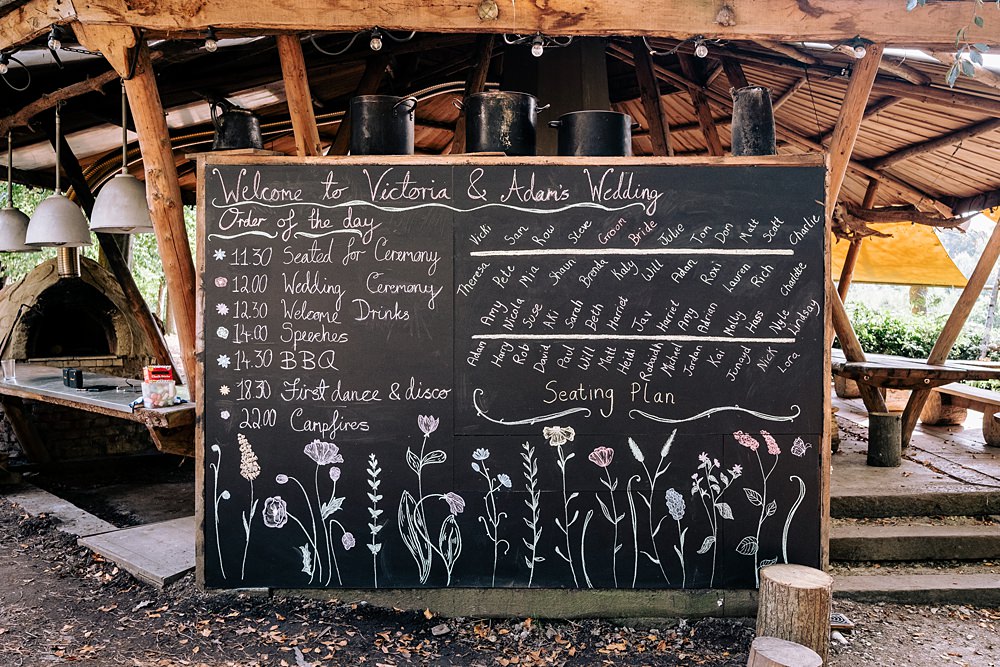 Welcome to Victoria & Adam's Wedding
Order of the day
11.30 Seated for Ceremony
12.00 Wedding Ceremony
12.30 Welcome Drinks
14.00 Speeches
14.30 BBQ
18.30 First dance & disco
22.00 Campfires
Vicki Sam Row Steve Groom Bride Julie Tom Don Matt Scott Charlie
Theresa Pete Mia Shaun Brenda Katy Will Adam Roxi Lauren Rich Charlotte
Amy Nicola Suse Aki Sarah Beth Harriet Jav Harriet Amy Adrian Molly Hass Nyle Lindsay
Adam Harry Rob David Paul Will Matt Heidi Michel Jordan Kai Junayd Nick Lora
Seating Plan